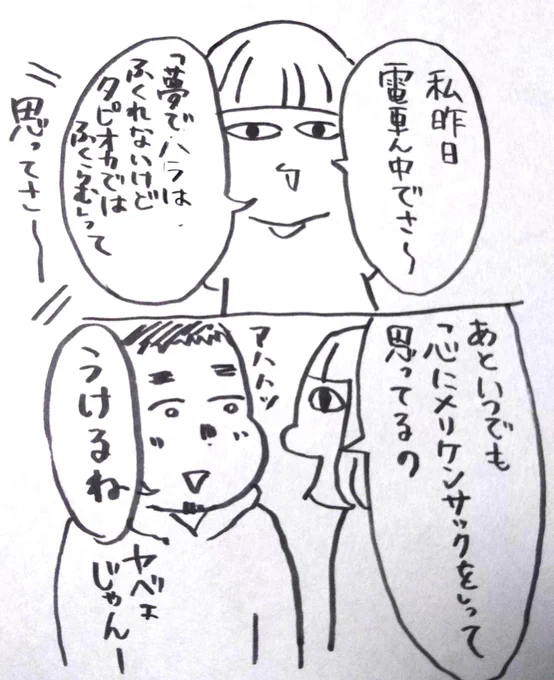 私昨日
電車ん中でさ〜
「夢でハラは
ふくれないけど
タピオカでは
ふくらむ」って
思ってさ〜
あといつでも
「心にメリケンサックを」って
思ってるの
アハハッ
うけるね
ヤベェ
じゃんー